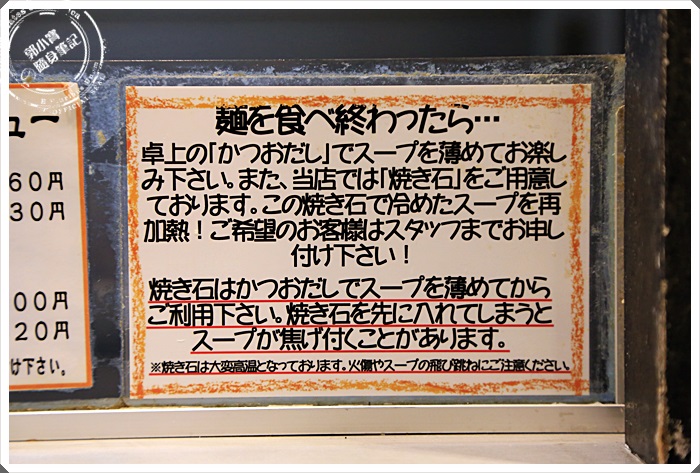 郭小寶
隨身筆記
ュー
60円
30円
00円
20円
け下さい。
麺を食べ終わったら…
卓上の「かつおだし」でスープを薄めてお楽し
み下さい。また、当店では「焼き石」をご用意し
ております。この焼き石で冷めたスープを再
加熱！ご希望のお客様はスタッフまでお申し
付け下さい！
焼き石はかつおだしでスープを薄めてから
ご利用下さい。焼き石を先に入れてしまうと
スープが焦げ付くことがあります。
※焼き石は大変高温となっております。火傷やスープの飛び跳ねにご注意ください。